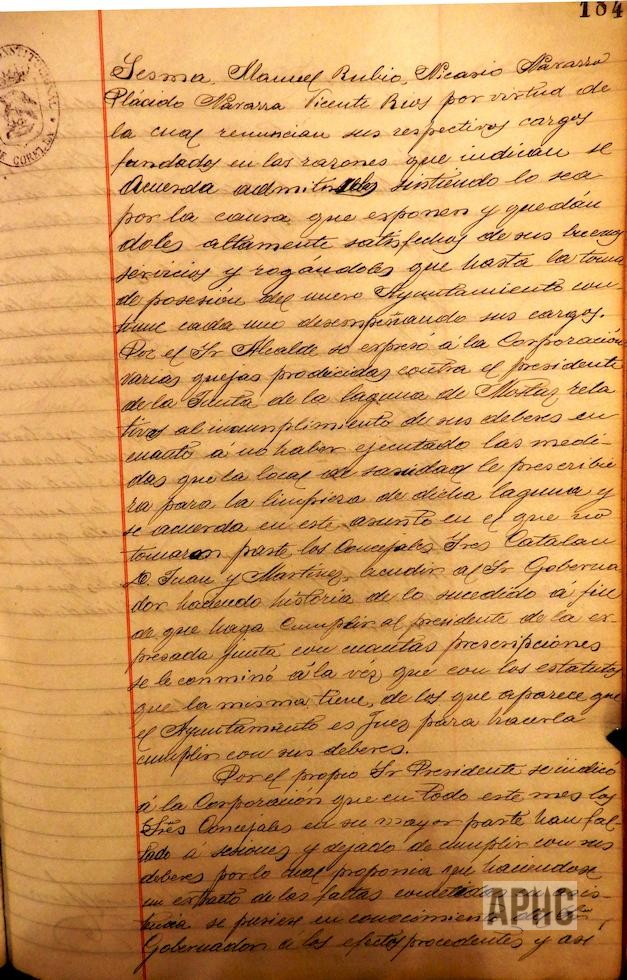 184
Sesma, Manuel Rubio, Nicasio Navarro
Plácido Navarra Vicente Rios por virtud de
la cual renuncian sus respectivos cargos
fundados en las razones que indican se
Acuerda admitirselas sintiendo lo sea
por la causa que exponen y quedan
doles altamente satisfechos de sus buenos
servicios y rogándoles que hasta la toma
de posesión del nuevo Ayuntamiento con-
tinue cada uno desempeñando sus cargos.
Por el Sr Alcalde se expresó á la Corporación
varias quejas producidas contra el presidente
de la Junta de la laguna de rela
tivas al incumplimiento de sus deberes en
cuanto á no haber ejecutado las medi-
das que la local de sanidad le prescribie
ra para la limpieza de dicha laguna y
se acuerda en este asunto en el que no
tomaron parte los Concejales Sres Catalan
D. Juan y Martinez, acudir al Sr Goberna
dor haciendo historia de lo sucedido á fin
de que haga cumplir al presidente de la ex-
presada junta con cuantas prescripciones
se le conminó á la véz que con los estatutos
que la misma tiene, de los que aparece que
el Ayuntamiento es Juez para hacerla
cumplir con sus deberes.
Por el propio Sr Presidente se indicó
á la Corporación que en todo este mes los
Sres Concejales en su mayor parte han fal-
tado á sesiones y dejado de cumplir con sus
deberes por lo cual proponia que haciendose
un extracto de las faltas de asis-
tencia se pusiese en conocimiento del Sr
Gobernador á los efectos procedentes y asi
APHC